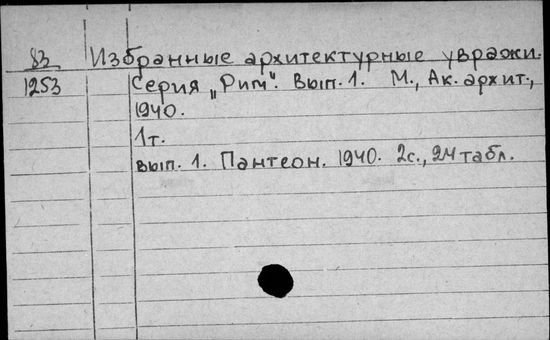 83 Избранные архитектурные увражи.
1253 Серия „Рим". Вып. 1. М., Ак. архит.,
1940.
1 т.
вып. 1. Пантеон. 1940. 2 с., 24 табл.